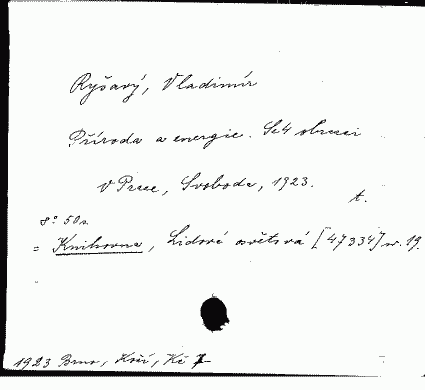 Ryšavý, Vladimír
Příroda a energie. Se 4 obrazci
V Praze, Svoboda, 1923.
t.
8° 50 s.
= Knihovna, Lidové osvěty sv. [47334] nr. 19.
1923 Brno, Koší, Kč 7